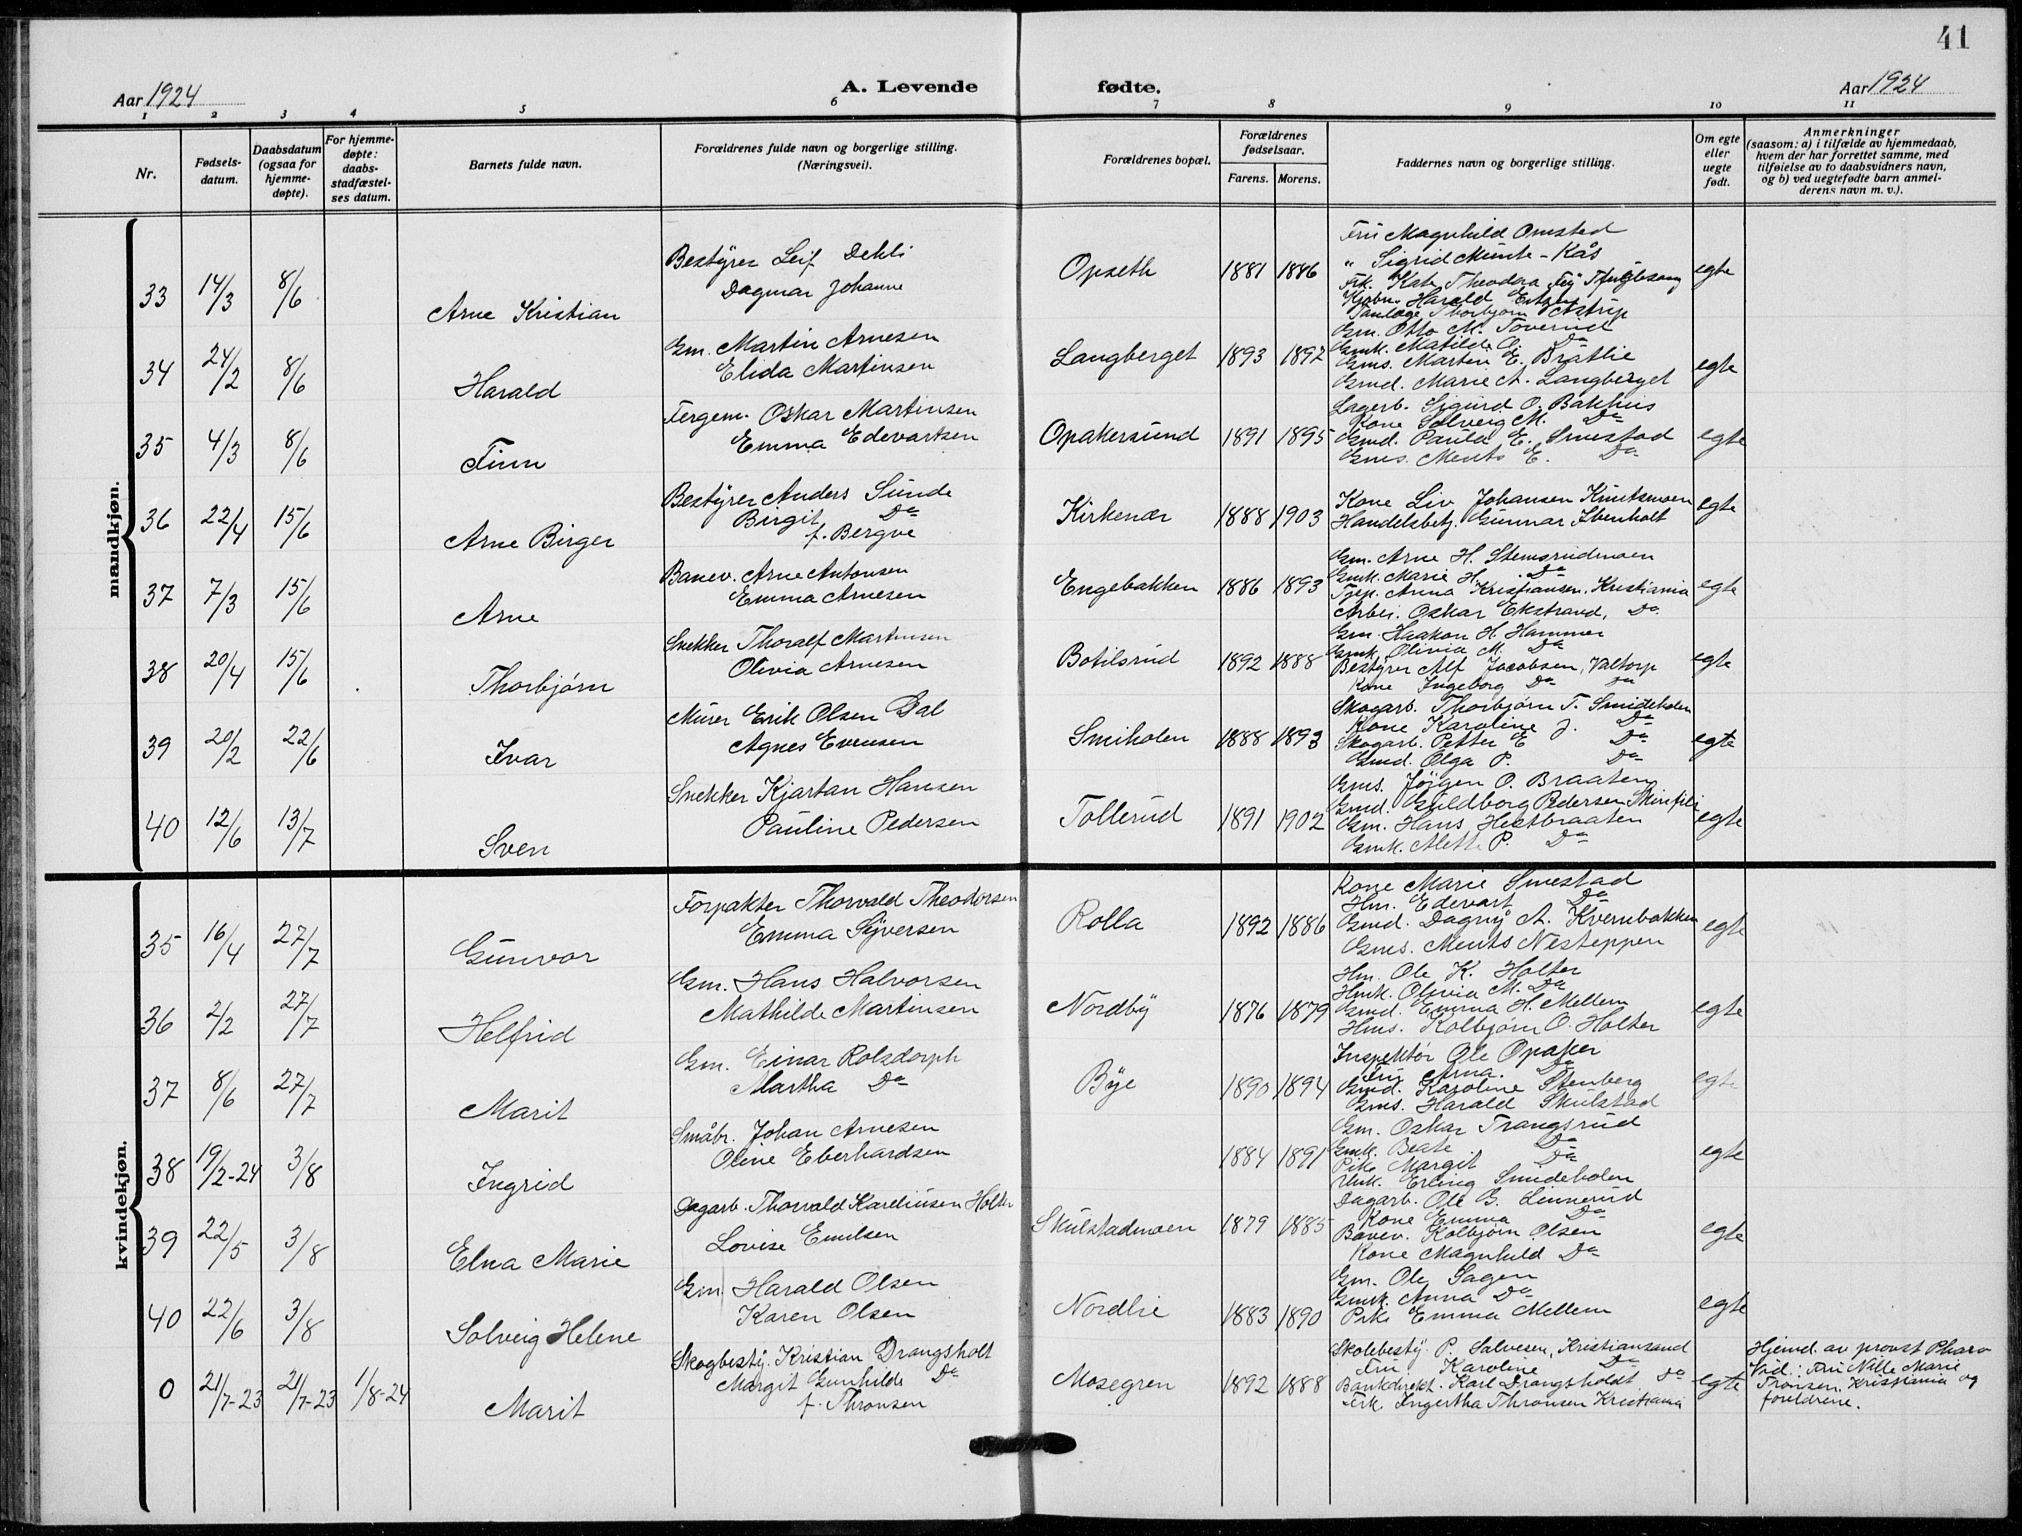 41
Aar 1924 A. Levende fødte. Aar 1924
1 2 3 4 5 6 7 8 9 10 11
Nr. Fødsels-datum. Daabsdatum (ogsaa for hjemme-døpte). For hjemme-døpte: daabs-stadfæstel-ses datum. Barnets fulde navn. Forældrenes fulde navn og borgerlige stilling. (Næringsvei). Forældrenes bopæl. Forældrenes fødselsaar. Farens. Morens. Faddernes navn og borgerlige stilling. Om egte eller uegte født. Anmerkninger (saasom: a) i tilfælde av hjemmedaab, hvem der har forrettet samme, med tilføielse av to daabsvidners navn, og b) ved uegtefødte barn anmel-derens navn m. v.).
mandkjøn.
33 14/3 8/6 Arne Kristian
Bestyrer Leif Dehli
Dagmar Johanne
Opseth 1881 1886
Fru Magnhild Omstad
" Sigrid Munte-Kås
Frk. Kate Theodora
Kjøbm. Harald
Tanlæge Thorbjørn Astrup
egte
34 24/2 8/6 Harald
Gm. Martin Arnesen
Elida Martinsen
Langberget 1893 1892
Gm. Otto M. Toverud
Gmk. Matilde O. Do
Gms. Martin E. Bratlie
Gmd. Marie A. Langberget
egte
35 4/3 8/6 Finn
Fergem. Oskar Martinsen
Emma Edevartsen
Opakersund 1891 1895
Lagerb. Sigurd O. Bakhus
Kone Solveig M. Do
Gmd. Paula E. Smestad
Gms. Ments E. Do
egte
36 22/4 15/6 Arne Birger
Bestyrer Anders Sunde
Birgit Do
f. Bergve
Kirkenær 1888 1903
Kone Liv Johansen Knutsmoen
Handelsbetj. Gunnar Ibenholt
egte
37 7/3 15/6 Arne
Banev. Arne Antonsen
Emma Arnesen
Engebakken 1886 1893
Gm. Arne H. Stemsrudmoen
Gmk. Marie H. Do
Tjep. Anna Kristiansen, Kristiania
Arbei. Oskar Ekstrand, Do
egte
38 20/4 15/6 Thorbjørn
Snekker Thoralf Martinsen
Olivia Arnesen
Botilsrud 1892 1888
Gm. Haakon H. Hammer
Gmk. Olivia M. Do
Bestyrer Alf Jacobsen, Valtorp
Kone Ingeborg Do Do
egte
39 20/2 22/6 Ivar
Murer Erik Olsen Dal
Agnes Evensen
Smiholen 1888 1893
Skogarb. Thorbjørn T. Smideholen
Kone Karoline J. Do
Skogarb. Petter E Do
Gmd. Olga P. Do
egte
40 12/6 13/7 Sven
Snekker Kjartan Hansen
Pauline Pedersen
Tollerud 1891 1902
Gms. Jørgen O. Braaten
Gmd. Guldborg Pedersen Skinfili
Gm. Hans Hestbraaten
Gmk. Alette P. Do
egte
kvindekjøn.
35 16/4 27/7 Gunvor
Forpakter Thorvald Theodorsen
Emma Syversen
Rolla 1892 1886
Kone Marie Smestad
Hm. Edevart Do
Gmd. Dagny A. Kvernbakken
Gms. Ments Nesteppen
egte
36 2/2 27/7 Helfrid
Gm. Hans Halvorsen
Mathilde Martinsen
Nordby 1876 1879
Hm. Ole K. Holter
Hmk. Olivia M. Do
Gmd. Emma H. Mellem
Hms. Kolbjørn O. Holter
egte
37 8/6 27/7 Marit
Gm. Einar Rolsdorph
Martha Do
Bye 1890 1894
Inspektør Ole Opaker
Fru Anna. Do
Gmd. Karoline Stenberg
Gms. Harald Skulstad
egte
38 19/2-24 3/8 Ingrid
Småbr. Johan Arnesen
Oline Eberhardsen
1884 1891
Gm. Oskar Trangsrud
Gmk. Beate Do
Pike Margit Do
Unk. Erling Smideholen
egte
39 22/5 3/8 Elna Marie
Dagarb. Thorvald Kareliusen Holter
Lovise Emilsen
Skulstadmoen 1879 1885
Dagarb. Ole G. Linnerud
Kone Emma Do
Banev. Kolbjørn Olsen
Kone Magnhild Do
egte
40 22/6 3/8 Solveig Helene
Gm. Harald Olsen
Karen Olsen
Nordlie 1883 1890
Gm. Ole Sagen
Gmk. Anna Do
Pike Emma Mellem
egte
0 21/7-23 21/7-23 1/8-24 Marit
Skogbesty. Kristian Drangsholt
Margit Gunhilde Do
f. Thronsen
Mosegren 1892 1888
Skolebesty. P. Salvesen, Kristiansand
Fru Karoline Do
Bankdirekt. Karl Drangsholdt Do
Frk. Ingertha Thronsen Kristiania
egte
Hjemd. av provst Pharo
Vid: Fru Nille Marie
Tronsen Kristiania og
foreldrene.